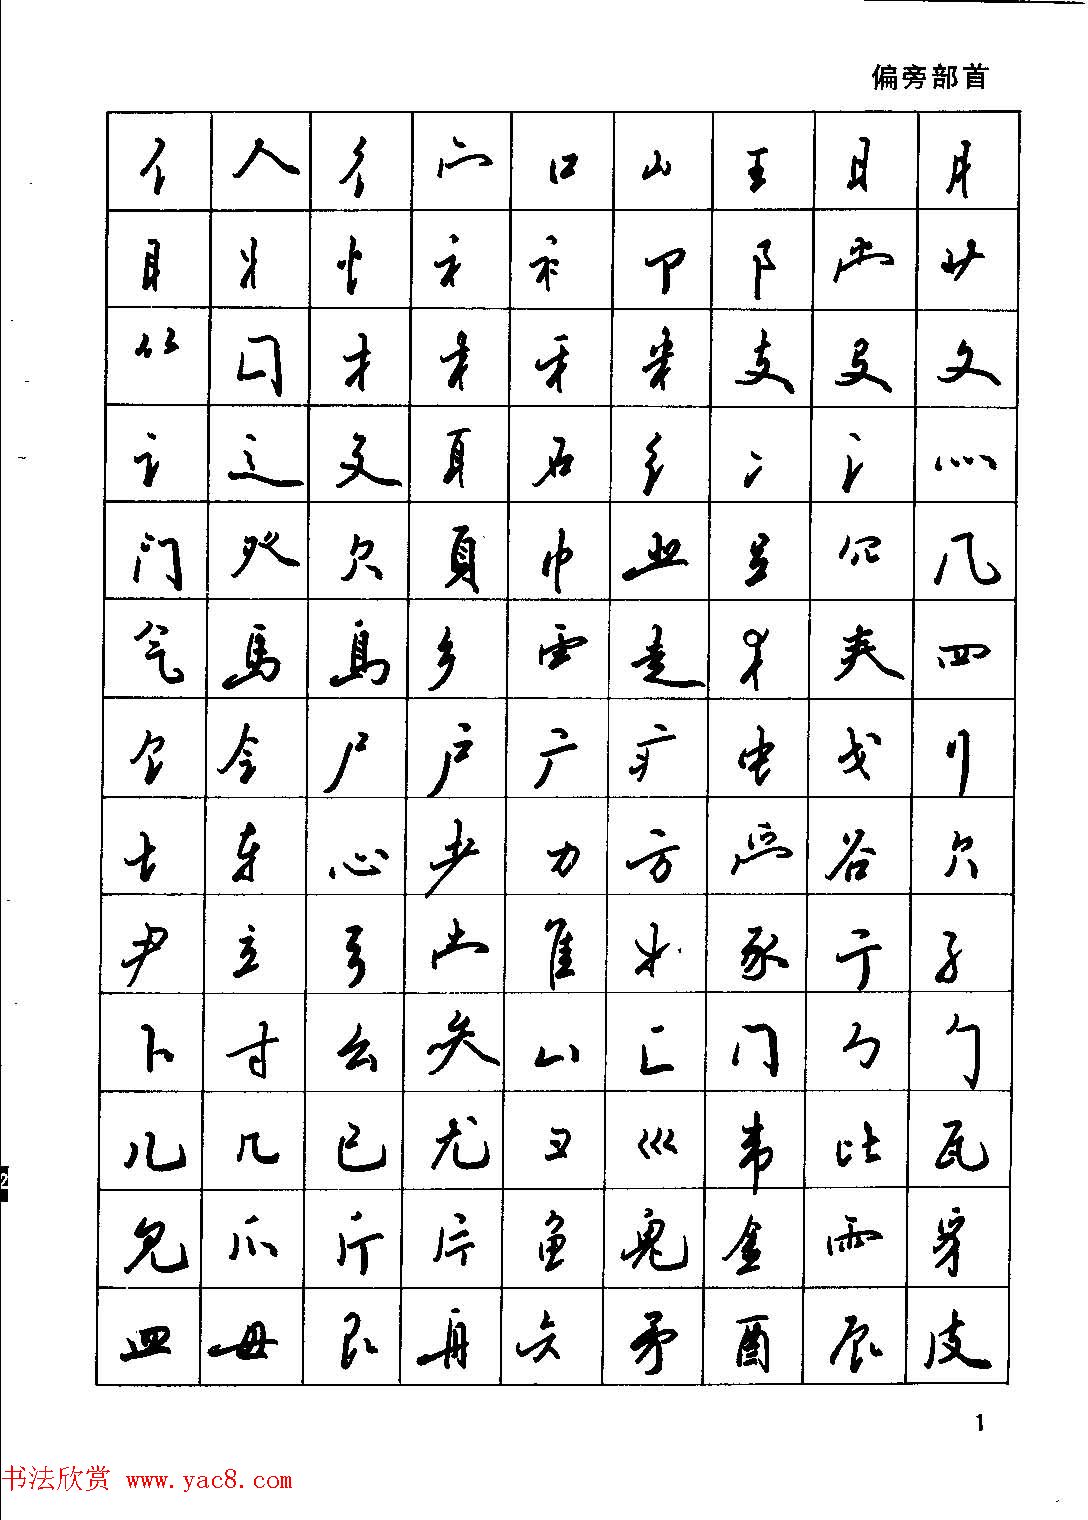 偏旁部首
亻 人 彳 宀 口 山 王 日 月
目 丬 忄 礻 衤 卩 阝 艹
⺮ 囗 扌 木 禾 米 支 殳 文
讠 辶 攵 耳 石 纟 冫 氵 灬
门 癶 欠 頁 巾 业 足 罒 几
气 馬 鳥 乡 雨 走 犭 夹 四
饣 今 尸 户 广 疒 虫 戈 刂
士 车 心 步 力 方 谷 欠
尹 立 弓 隹 豕 亍 子
卜 寸 幺 矢 凵 匚 门 勹 勹
儿 几 已 尤 彐 巛 韦 比 瓦
见 爪 斤 片 鱼 鬼 金 雨 穿
皿 毋 艮 舟 六 矛 酉 辰 皮
1
书法欣赏 www.yac8.com